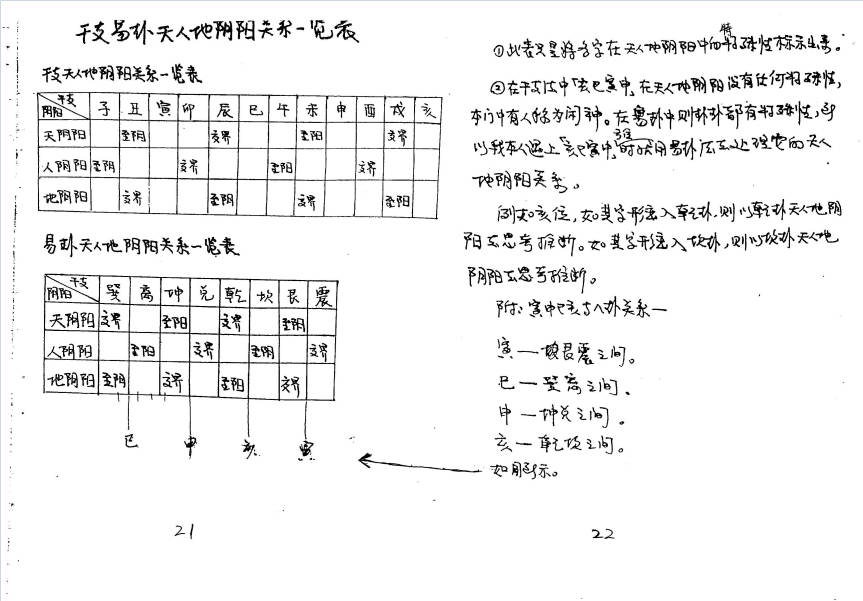 干支易卦天人地阴阳关系一览表
干支天人地阴阳关系一览表
干支
阴阳 子 丑 寅 卯 辰 巳 午 未 申 酉 戌 亥
天阴阳 至阴 交界 至阳 交界
人阴阳 至阴 交界 至阳 交界
地阴阳 交界 至阴 交界 至阳
易卦天人地阴阳关系一览表
干支
阴阳 巽 离 坤 兑 乾 坎 艮 震
天阴阳 交界 至阳 交界 至阴
人阴阳 至阳 交界 至阴 交界
地阴阳 至阴 交界 至阳 交界
巳 申 亥 寅
21
①此表只是将各字在天人地阴阳中的特殊性标示出来。
②在干支法中「亥巳寅申」在天人地阴阳没有任何特殊性,
本门中有人称为闲神。在易卦中则卦卦都有特殊性,所
以我本人遇上「亥巳寅申」时就用易卦法去处理它的天人
地阴阳关系。
例如亥位,如某字形煞入乾卦,则以乾卦天人地阴
阳去思考推断。如某字形煞入坎卦,则以坎卦天人地
阴阳去思考推断。
附:寅申巳亥与八卦关系一
寅一艮震之间。
巳一巽离之间。
申一坤兑之间。
亥一乾坎之间。
如图所示。
22